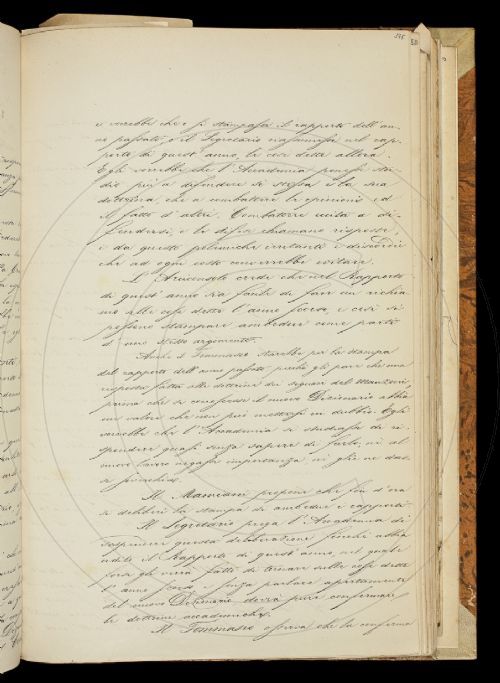 375
e vorrebbe che o si stampasse il rapporto dell'an-
no passato, o il Segretario riassumesse nel rap-
porto di quest'anno le cose dette allora.
Egli vorrebbe che l'Accademia ponesse stu-
dio più a difendere se stessa e la sua
dottrina, che a combattere le opinioni ed
il fatto d'altri. Combattere incita a di-
fendersi, e le difese chiamano risposte,
e da queste polemiche irritanti e disdori
che ad ogni costo converrebbe evitare.
L'Arcangeli crede che nel Rapporto
di quest'anno sia facile di fare un richia-
mo alle cose dette l'anno scorso, e così si
possono stampare ambedue come parti
d'uno stesso argomento.
Anche il Tommaseo starebbe per la stampa
del rapporto dell'anno passato perché gli pare che una
risposta fatta alle dottrine dei seguaci del Manzoni,
prima che si conoscesse il nuovo Dizionario abbia
un valore che non può mettersi in dubbio. Egli
vorrebbe che l'Accademia si studiasse di ri-
spondere quasi senza sapere di farlo, né al
nuovo lavoro negasse importanza né gliene das-
se
Il Mamiani propone che fin d'ora
si deliberi la stampa di ambedue i rapporti.
Il Segretario prega l'Accademia di
sospendere questa deliberazione finché abbia
udito il Rapporto di quest'anno, nel quale
forse gli verrà fatto di toccare delle cose dette
l'anno scorso e senza parlare apertamente
del nuovo Dizionario dovrà pure confermare
le dottrine accademiche.
Il Tommaseo osserva che la conferma